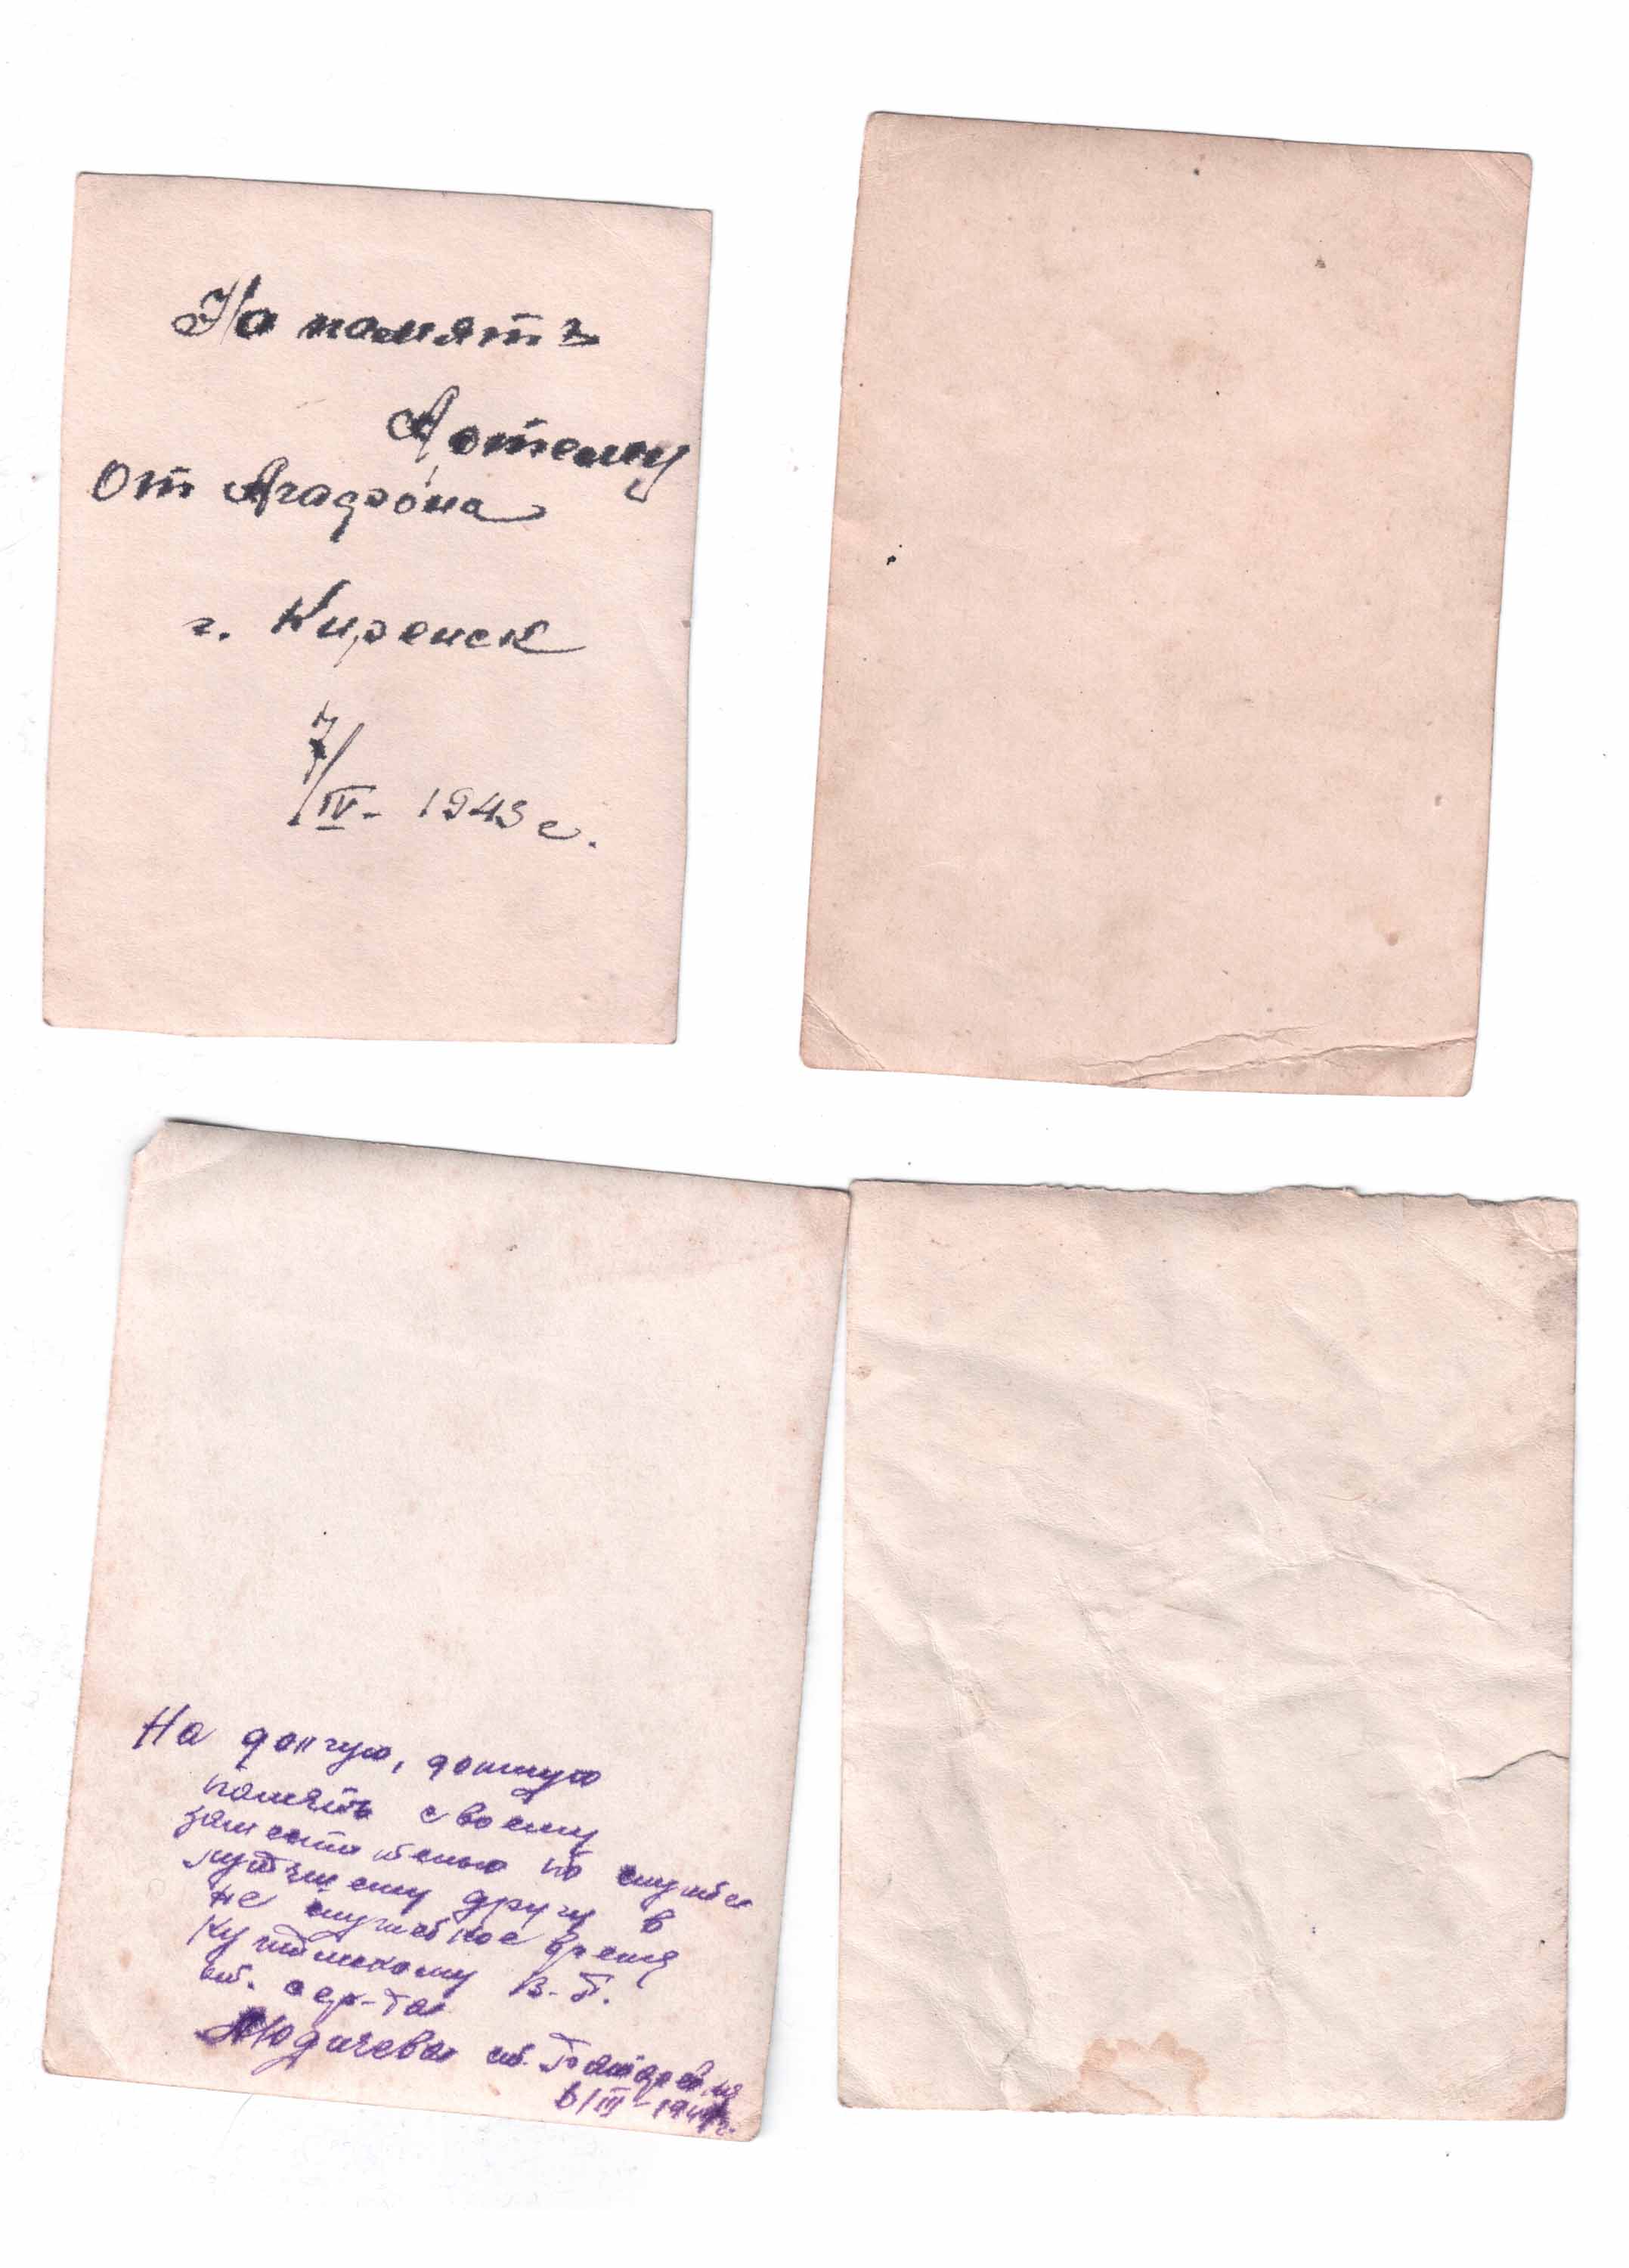 На память
Артему
От Агафона
г. Киренск
7/IV - 1943 г.
На долгую, долгую
память своему
заместителю по службе
лутшему другу в
не служебное время
В. Г.
от. сер-та
от
6/III-194